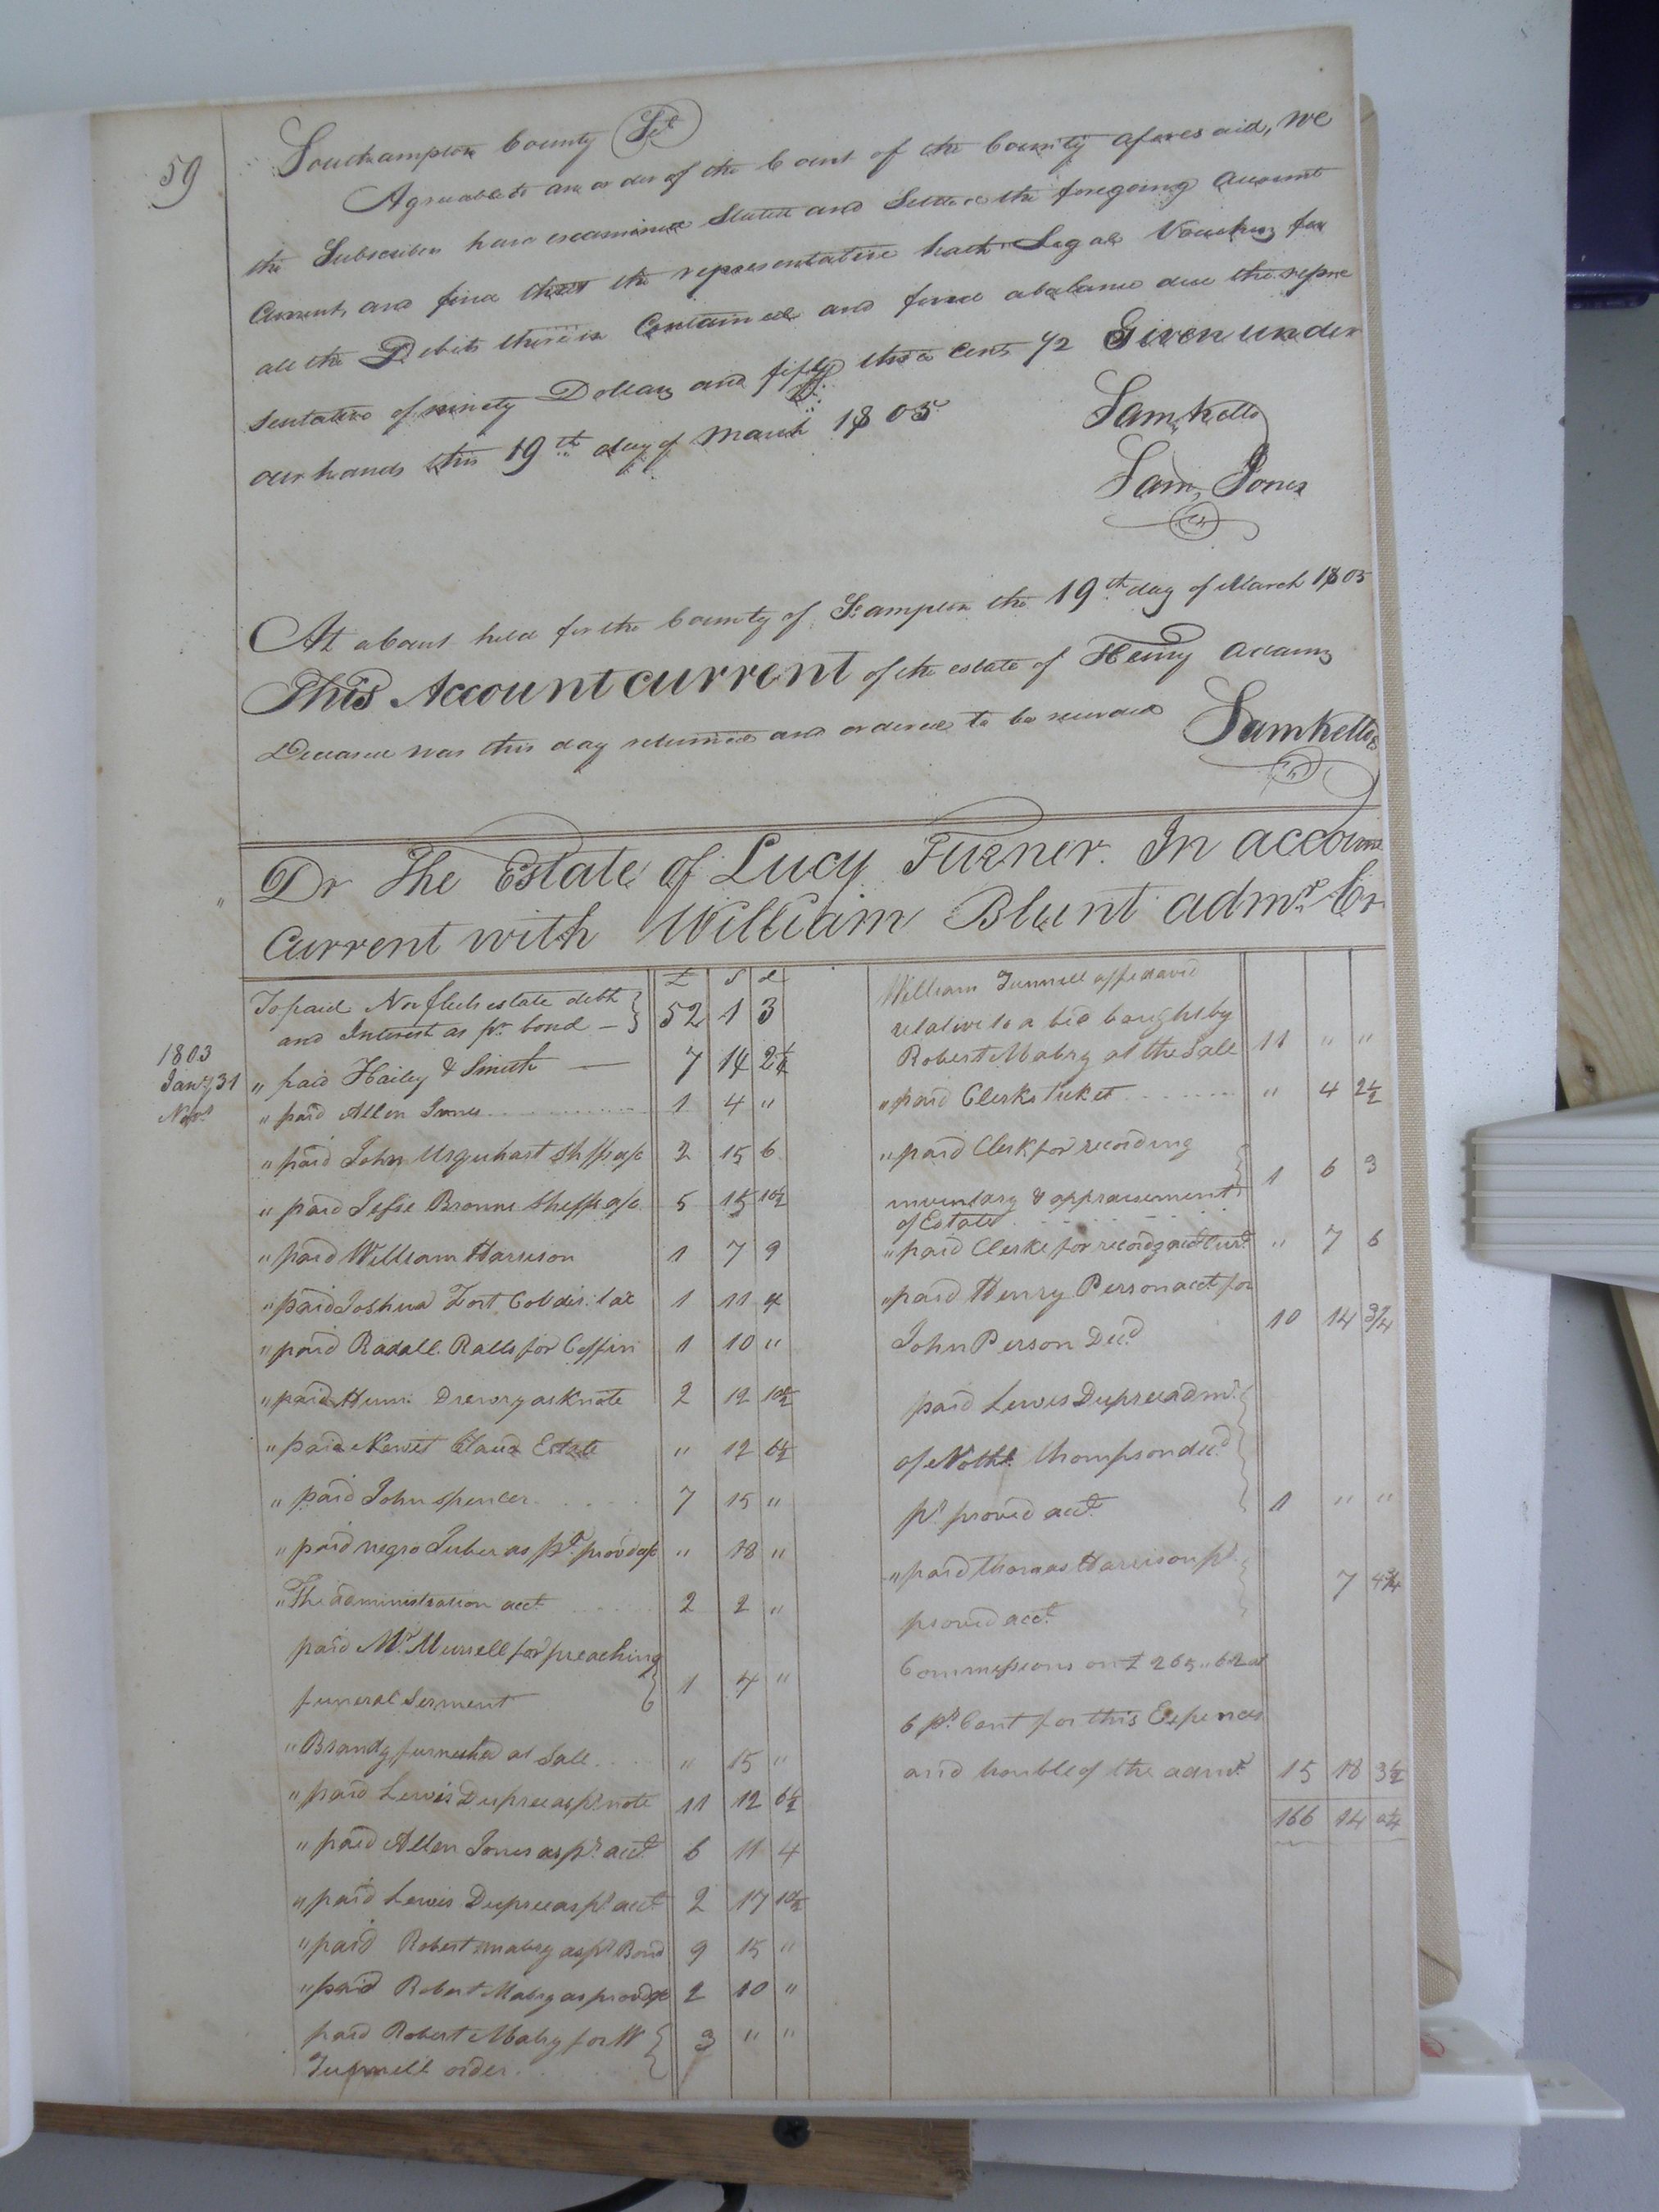 59
Southampton County Sct
Agreeable to an order of the Court of the County aforesaid, we
the Subscribers have examined Stated and Settled the foregoing account
Current, and find that the representative hath Legal Vouchers for
all the Debits therein Contained and find a balance due the repre
sentative of ninety Dollars and fifty three cents 1/2 Given under
our hands this 19th day of March 1805
Sam Kello
Sam, Jones
At a Court held for the County of S:ampton the 19th day of March 1805
This Account current of the estate of Henry Adams
Deceased was this day returned and ordered to be recorded
Sam Kello
Dr The Estate of Lucy Turner. In account
Current with William Blunt admr. Cr
£ S d
To paid Norfleets estate debt
and Interest as pr. bond 52 1 3
1803
Jany 31 " paid Hailey & Smith 7 14 2 1/4
" paid Allen Jones 1 4 "
" paid John Urquhart Shffs a/c 2 15 6
" paid Jesse Browne Sheffs a/c 5 15 10 1/2
" paid William Harrison 1 7 9
" paid Joshua Fort Col dir. tax 1 11 4
" paid Radall. Ralls for Coffin 1 10 "
" paid Hum: Drewry as pr note 2 12 10 1/2
" paid Newit Claud Estate " 12 6 1/2
" paid John Spencer 7 15 "
" paid negro as pr. provd a/c " 18 "
" The administration acct 2 2 "
paid Mr. Murrell for preaching
funeral Serment 1 4 "
" Brandy furnished at Sale " 15 "
" paid Lewis Dupree as pr note 11 12 6 1/2
" paid Allen Jones as pr. acct. 6 11 4
" paid Lewis Dupree as pr acct. 2 17 10 1/2
" paid Robert Mabry as pr Bond 9 15 "
" paid Robert Mabry as provd a/c 2 10 "
paid Robert Mabry for W
Tunnell order 3 " "
William Tunnell affedavid
relative to a bed bought by
Robert Mabry at the Sale 11 " "
" paid Clerks ticket " 4 2 1/2
" paid Clerk for recording
inventary & appraisement
of Estate 1 6 3
" paid Clerke for recordg acct Curt. " 7 6
" paid Henry Person acct. for
John Person Decd. 10 14 3/4
paid Lewis Dupree admr.
of Nathl. Thompson decd.
pr. proved acct. 1 " "
" paid Thomas Harrison pr.
proved acct. 7 4 3/4
Commissions on £ 265 " 6 2 at
6 pr. Cent for this Expences
and trouble of the admr. 15 18 3 1/2
166 14